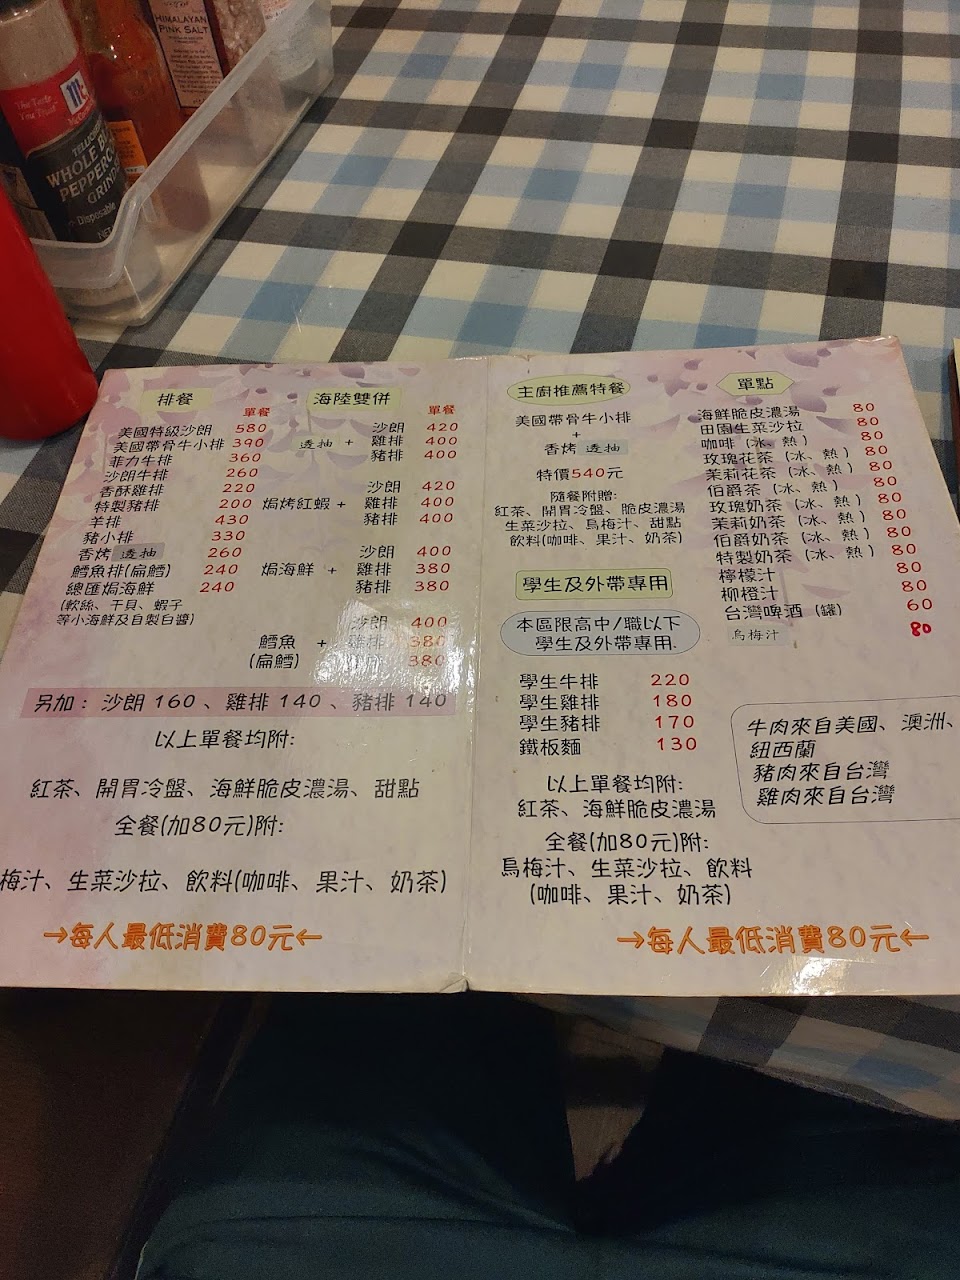 HIMALAYAN
PINK SALT
The Taste
You Trust
McCormick
WHOLE BLACK
PEPPERCORN
GRINDER
Disposable
NET
排餐
單餐
美國特級沙朗 580
美國帶骨牛小排 390
菲力牛排 360
沙朗牛排 260
香酥雞排 220
特製豬排 200
羊排 430
豬小排 330
香烤 透抽 260
鱈魚排(扁鱈) 240
總匯焗海鮮 240
(軟絲、干貝、蝦子
等小海鮮及自製白醬)
海陸雙併
單餐
沙朗 420
透抽 + 雞排 400
豬排 400
沙朗 420
焗烤紅蝦 + 雞排 400
豬排 400
沙朗 400
焗海鮮 + 雞排 380
豬排 380
沙朗 400
鱈魚 + 雞排 380
(扁鱈) 380
另加：沙朗 160、雞排 140、豬排 140
以上單餐均附:
紅茶、開胃冷盤、海鮮脆皮濃湯、甜點
全餐(加80元)附:
梅汁、生菜沙拉、飲料(咖啡、果汁、奶茶)
→每人最低消費80元←
主廚推薦特餐
美國帶骨牛小排
+
香烤 透抽
特價540元
隨餐附贈:
紅茶、開胃冷盤、脆皮濃湯
生菜沙拉、烏梅汁、甜點
飲料(咖啡、果汁、奶茶)
學生及外帶專用
本區限高中/職以下
學生及外帶專用.
學生牛排 220
學生雞排 180
學生豬排 170
鐵板麵 130
以上單餐均附:
紅茶、海鮮脆皮濃湯
全餐(加80元)附:
烏梅汁、生菜沙拉、飲料
(咖啡、果汁、奶茶)
→每人最低消費80元←
單點
海鮮脆皮濃湯 80
田園生菜沙拉 80
咖啡 (冰、熱) 80
玫瑰花茶 (冰、熱) 80
茉莉花茶 (冰、熱) 80
伯爵茶 (冰、熱) 80
玫瑰奶茶 (冰、熱) 80
茉莉奶茶 (冰、熱) 80
伯爵奶茶 (冰、熱) 80
特製奶茶 (冰、熱) 80
檸檬汁 80
柳橙汁 80
台灣啤酒 (罐) 60
烏梅汁 80
牛肉來自美國、澳洲、
紐西蘭
豬肉來自台灣
雞肉來自台灣